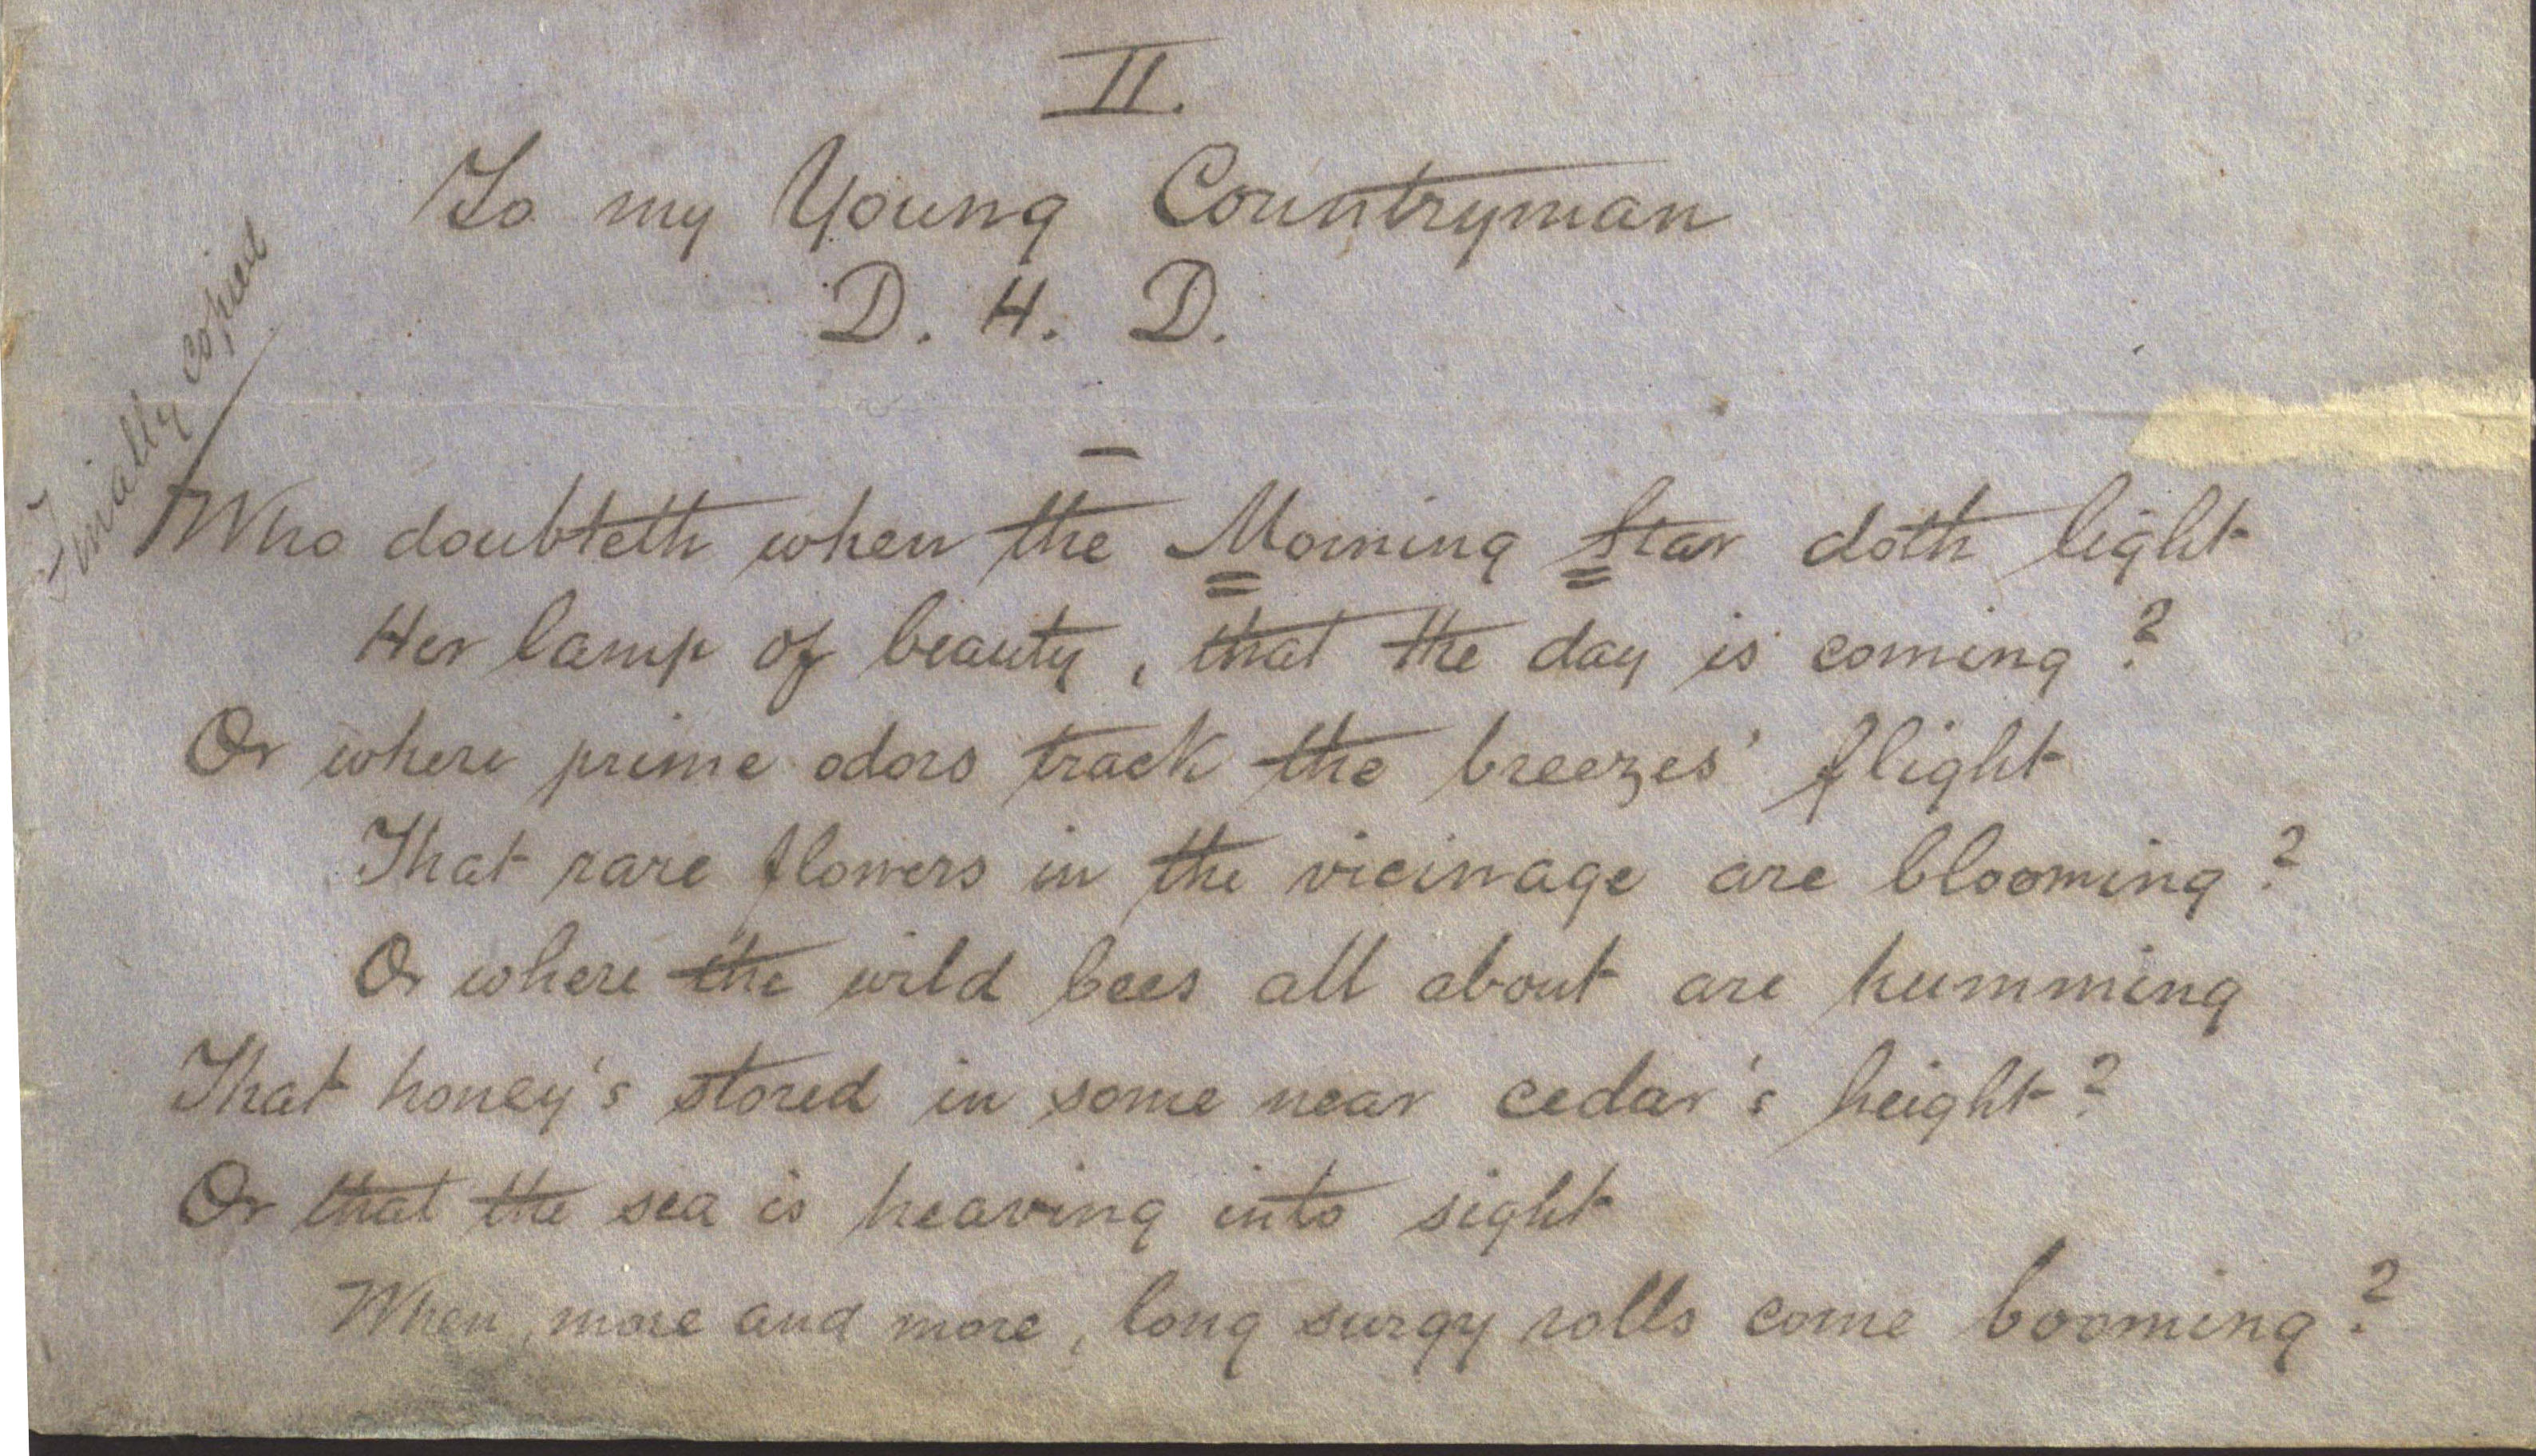 II.
To my Young Countryman
D. H. D.
Finally copied
Who doubteth when the Morning Star doth light
Her lamp of beauty, that the day is coming?
Or where prime odors track the breezes' flight
That rare flowers in the vicinage are blooming?
Or where the wild bees all about are humming
That honey's stored in some near cedar's height?
Or that the sea is heaving into sight
When, more and more, long surgy rolls come booming?